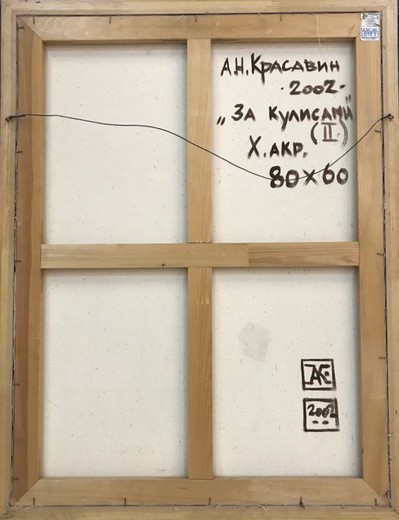 А.Н.Красавин
·2002·
„За кулисами"
(II)
Х.акр.
80×60
АК
2002